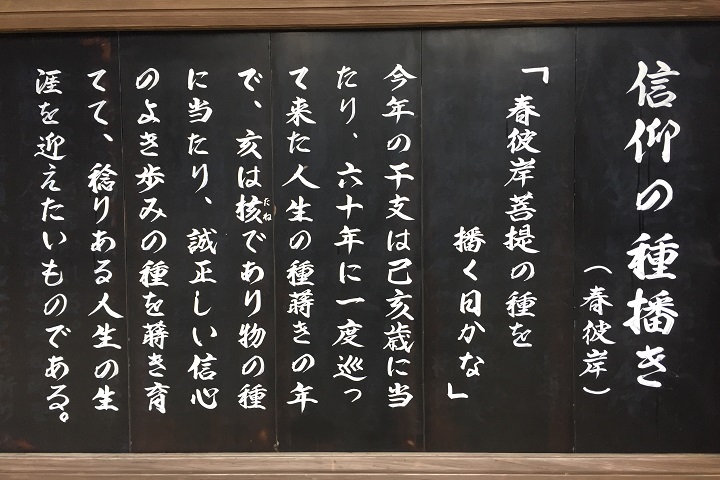 信仰の種播き
(春彼岸)
「春彼岸菩提の種を
播く日かな」
今年の干支は己亥歳に当
たり、六十年に一度巡っ
て来た人生の種蒔きの年
で、亥は核であり物の種
たね
に当たり、誠正しい信心
のよき歩みの種を蒔き育
てて、稔りある人生の生
涯を迎えたいものである。